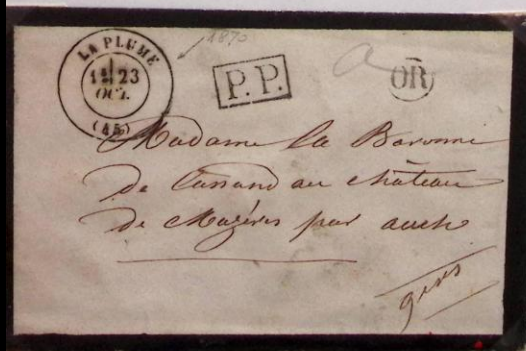 LA PLUME
1E 23
OCT.
(45)
1870
P.P.
a
OR
Madame la Baronne
de Cassand au château
de Mazères par auch
gers